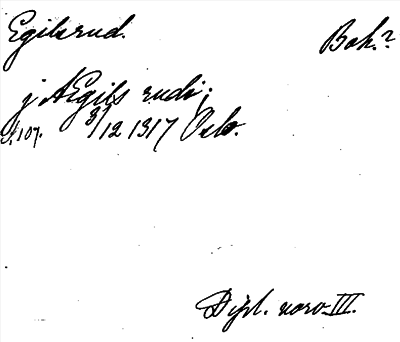 Egilsrud. Bok.?
j AEgils rudi;
s. 107. 8/12 1317 Oslo.
Dipl. norv. III.